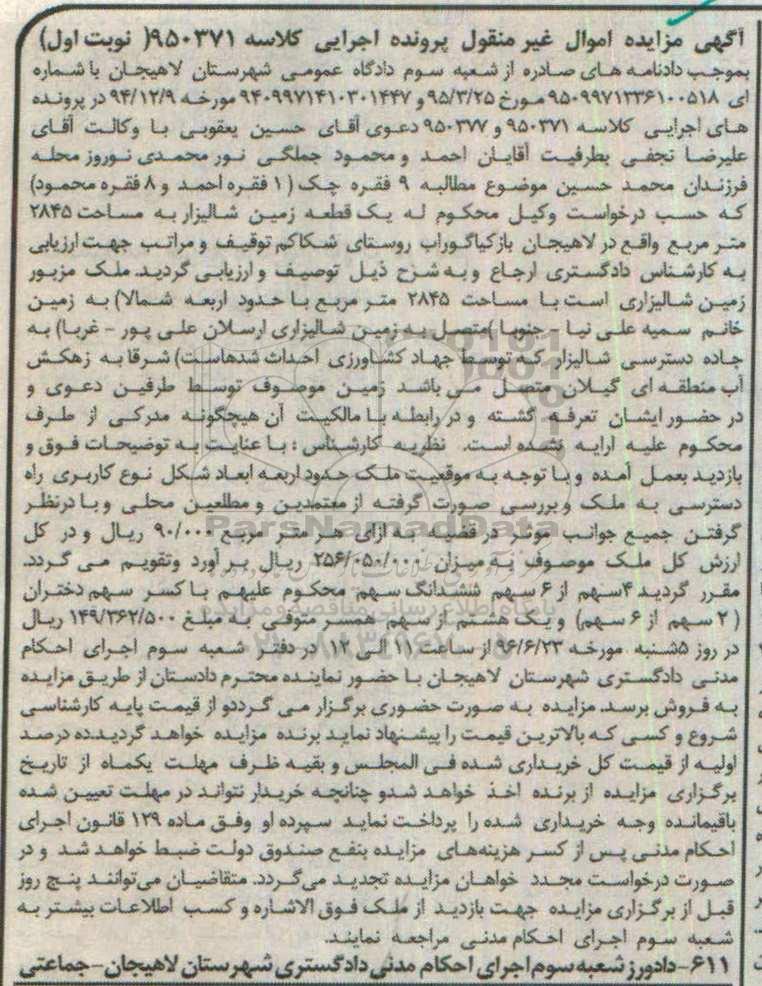 آگهی مزایده اموال غیر منقول پرونده اجرایی کلاسه ۹۵۰۳۷۱( نوبت اول)
بموجب دادنامه های صادره از شعبه سوم دادگاه عمومی شهرستان لاهیجان با شماره
ای ۹۵۰۹۹۷۱۳۳۶۱۰۰۵۱۸ مورخ ۹۵/۳/۲۵ و ۹۴۰۹۹۷۱۴۱۰۳۰۱۴۴۷ مورخه ۹۴/۱۲/۹ در پرونده
های اجرایی کلاسه ۹۵۰۳۷۱ و ۹۵۰۳۷۷ دعوی آقای حسین یعقوبی با وکالت آقای
علیرضا نجفی بطرفیت آقایان احمد و محمود جملگی نور محمدی نوروز محله
فرزندان محمد حسین موضوع مطالبه ۹ فقره چک (۱ فقره احمد و ۸ فقره محمود)
که حسب درخواست وکیل محکوم له یک قطعه زمین شالیزار به مساحت ۲۸۴۵
متر مربع واقع در لاهیجان بازکیاگوراب روستای شکاکم توقیف و مراتب جهت ارزیابی
به کارشناس دادگستری ارجاع و به شرح ذیل توصیف و ارزیابی گردید. ملک مزبور
زمین شالیزاری است با مساحت ۲۸۴۵ متر مربع با حدود اربعه شمالا) به زمین
خانم سمیه علی نیا - جنوبا )متصل به زمین شالیزاری ارسلان علی پور - غربا) به
جاده دسترسی شالیزار که توسط جهاد کشاورزی احداث شدهاست) شرقا به زهکش
آب منطقه ای گیلان متصل می باشد زمین موصوف توسط طرفین دعوی و
در حضور ایشان تعرفه گشته و در رابطه با مالکیت آن هیچگونه مدرکی از طرف
محکوم علیه ارایه نشده است. نظریه کارشناس : با عنایت به توضیحات فوق و
بازدید بعمل آمده و با توجه به موقعیت ملک حدود اربعه ابعاد شکل نوع کاربری راه
دسترسی به ملک و بررسی صورت گرفته از معتمدین و مطلعین محلی و با درنظر
گرفتن جمیع جوانب موثر در قضیه به ازای هر متر مربع ۹۰/۰۰۰ ریال و در کل
ارزش کل ملک موصوف به میزان ۲۵۶/۰۵۰/۰۰۰ ریال بر آورد وتقویم می گردد.
مقرر گردید ۴سهم از ۶ سهم ششدانگ سهم محکوم علیهم با کسر سهم دختران
(۲ سهم از ۶ سهم) و یک هشتم از سهم همسر متوفی به مبلغ ۱۴۹/۳۶۲/۵۰۰ ریال
در روز ۵شنبه مورخه ۹۶/۶/۲۳ از ساعت ۱۱ الی ۱۲ در دفتر شعبه سوم اجرای احکام
مدنی دادگستری شهرستان لاهیجان با حضور نماینده محترم دادستان از طریق مزایده
به فروش برسد. مزایده به صورت حضوری برگزار می گرددو از قیمت پایه کارشناسی
شروع و کسی که بالاترین قیمت را پیشنهاد نماید برنده مزایده خواهد گردید.ده درصد
اولیه از قیمت کل خریداری شده فی المجلس و بقیه ظرف مهلت یکماه از تاریخ
برگزاری مزایده از برنده اخذ خواهد شدو چنانچه خریدار نتواند در مهلت تعیین شده
باقیمانده وجه خریداری شده را پرداخت نماید سپرده او وفق ماده ۱۲۹ قانون اجرای
احکام مدنی پس از کسر هزینه‌های مزایده بنفع صندوق دولت ضبط خواهد شد و در
صورت درخواست مجدد خواهان مزایده تجدید می‌گردد. متقاضیان می‌توانند پنج روز
قبل از برگزاری مزایده جهت بازدید از ملک فوق الاشاره و کسب اطلاعات بیشتر به
شعبه سوم اجرای احکام مدنی مراجعه نمایند.
۶۱۱-دادورز شعبه سوم اجرای احکام مدنی دادگستری شهرستان لاهیجان-جماعتی
ParsNamadData
پایگاه اطلاع رسانی مناقصه و مزایده